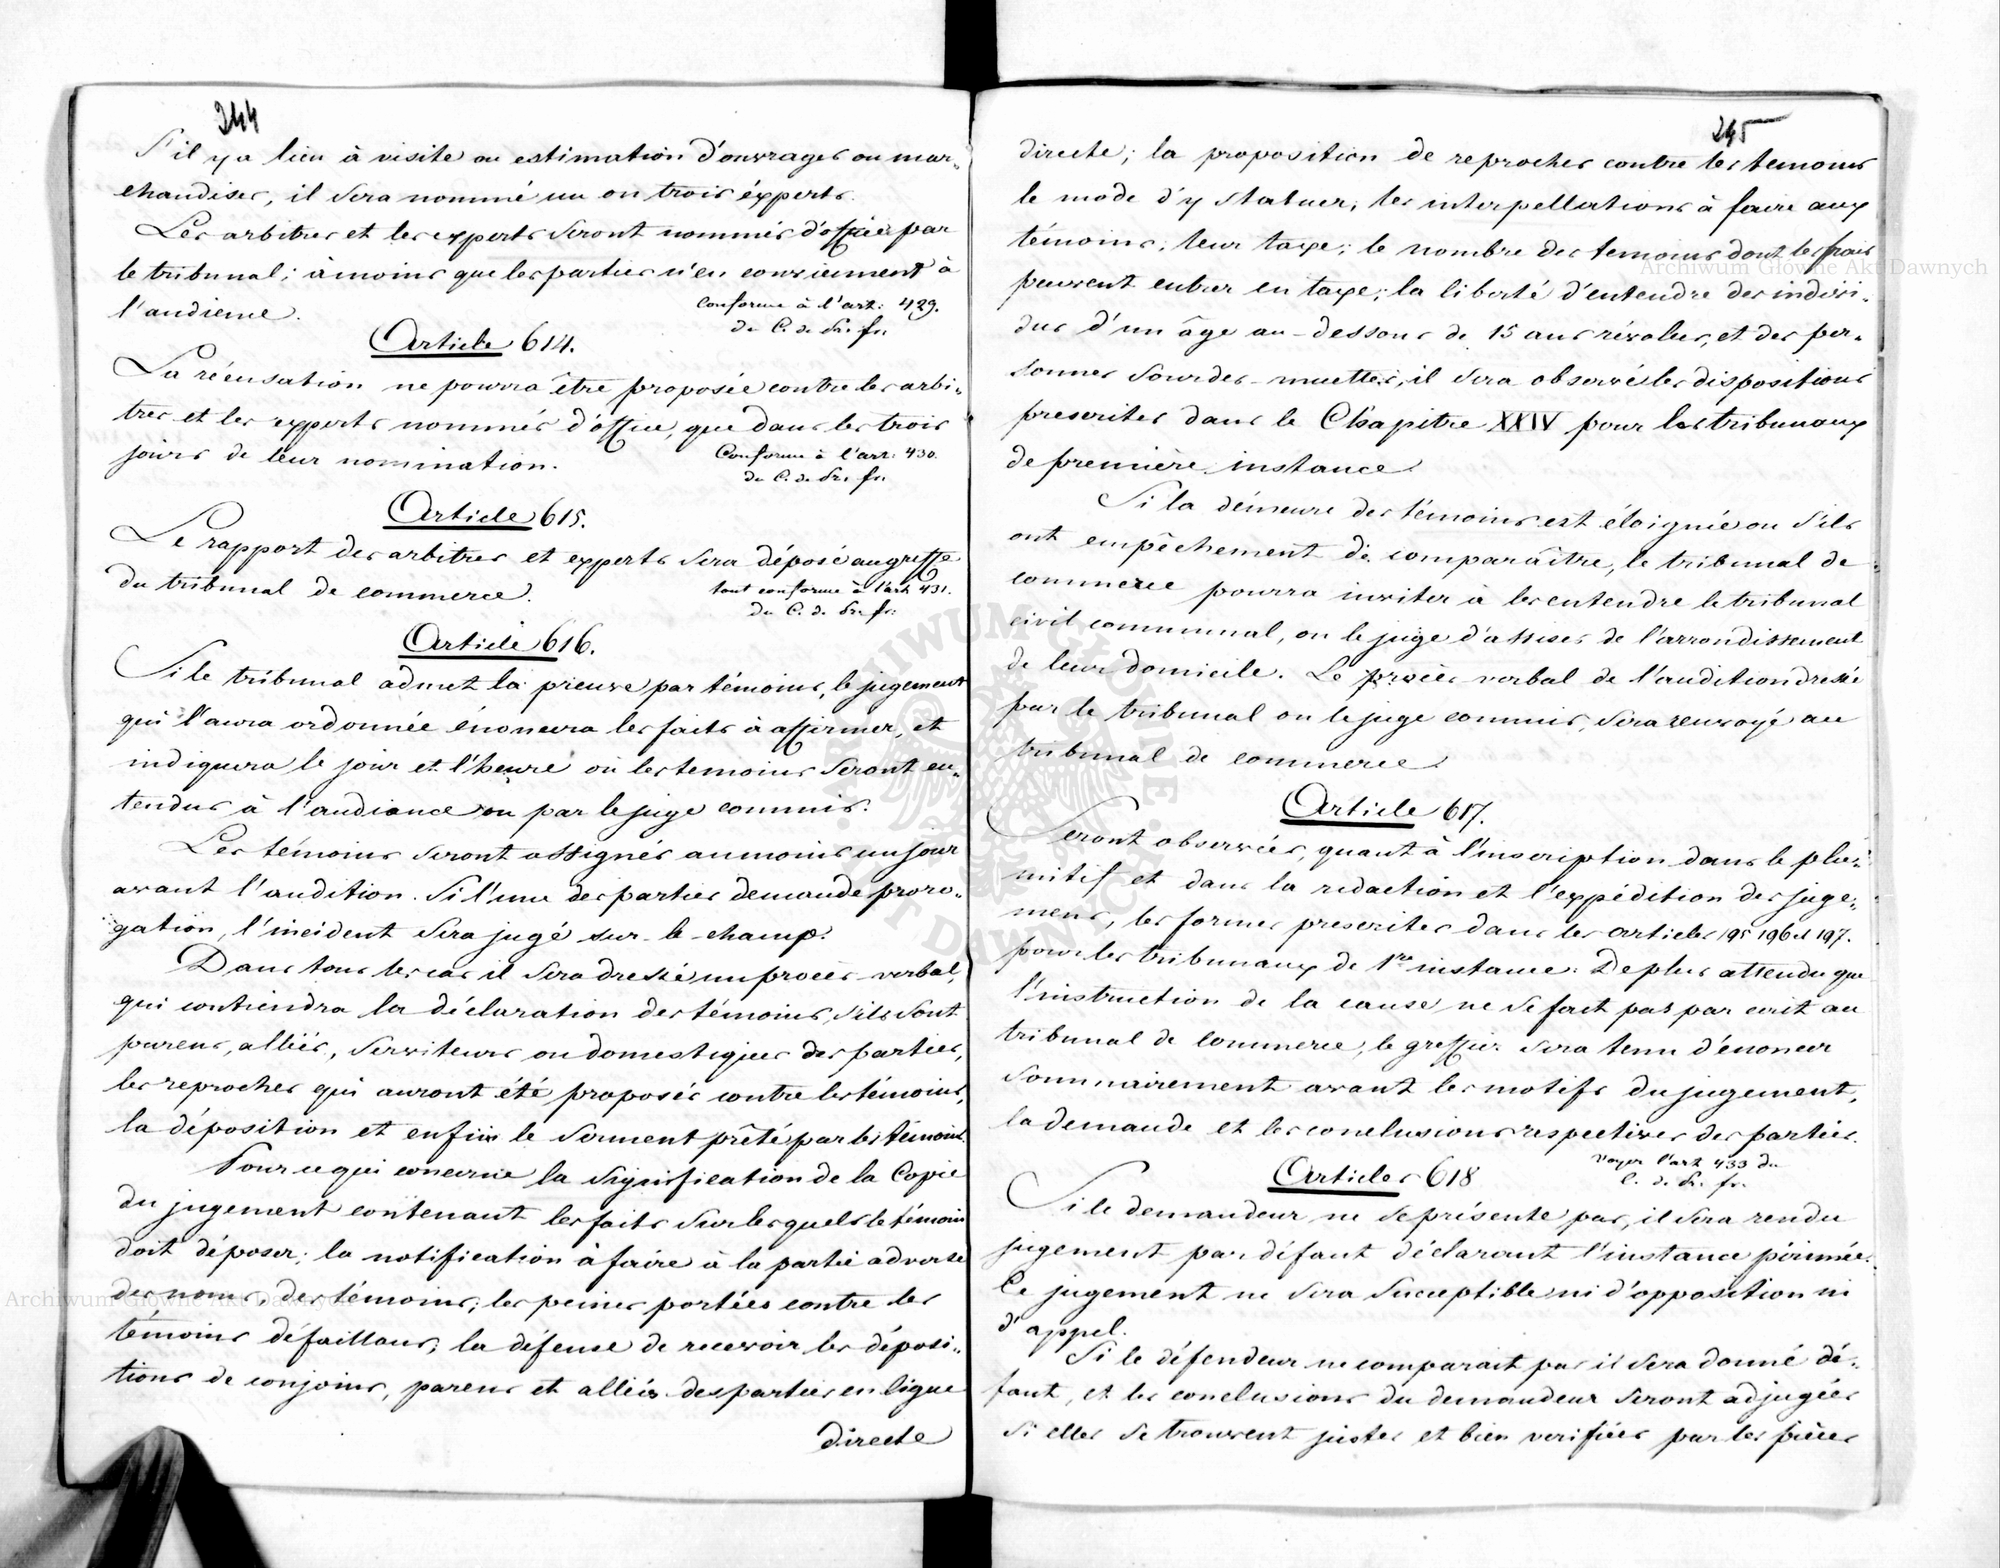 244
S'il y a lieu à visite ou estimation d'ouvrages ou mar-
chandises, il sera nommé un ou trois éxperts.
Les arbitres et les experts seront nommés d'office par
le tribunal; à moins que les parties n'en conviennent à
l'audience.
conforme à l'art: 429.
du C. de Pr. fr.
Article 614.
La récusation ne pourra être proposée contre les arbi-
tres et les experts nommés d'office, que dans les trois
jours de leur nomination.
Conforme à l'art. 430.
du C. de Pr. fr.
Article 615.
Le rapport des arbitres et experts sera déposé au greffe
du tribunal de commerce.
tout conforme à l'art 431.
du C. de Pr. fr.
Article 616.
Si le tribunal admet la preuve par témoins, le jugement
qui l'aura ordonnée énoncera les faits à affirmer, et
indiquera le jour et l'heure où les temoins seront en-
tendus à l'audience ou par le juge commis.
Les témoins seront assignés au moins un jour
avant l'audition. Si l'une des parties demande proro-
gation, l'incident sera jugé sur-le-champ.
Dans tous les cas il sera dressé un procès-verbal,
qui contiendra la déclaration des témoins, s'ils sont
parens, alliés, serviteurs ou domestiques des parties,
les reproches qui auront été proposés contre les témoins,
la déposition et enfin le serment prêté par les témoins.
Pour ce qui concerne la signification de la Copie
du jugement contenant les faits sur lesquels le témoin
doit déposer; la notification à faire à la partie adverse
des noms, des témoins; les peines portées contre les
témoins défaillans; la défense de recevoir les déposi-
tions de conjoins, parens et alliés des parties en ligne
directe
245
directe; la proposition de reproches contre les temoins
le mode d'y statuer; les interpellations à faire aux
témoins; leur taxe; le nombre des temoins dont les frais
peuvent entrer en taxe; la liberté d'entendre des indivi-
dus d'un âge au-dessous de 15 ans révolus, et des per-
sonnes sourdes-muettes, il sera observé les dispositions
prescrites dans le Chapitre XXIV pour les tribunaux
de première instance.
Si la démeure des témoins est éloignée ou s'ils
ont empêchement de comparaître, le tribunal de
commerce pourra inviter à les entendre le tribunal
civil communal, ou le juge d'assises de l'arrondissement
de leur domicile. Le procès verbal de l'audition dressé
par le tribunal ou le juge commis, sera renvoyé au
tribunal de commerce.
Article 617.
Seront observées, quant à l'inscription dans le plu-
mitif et dans la redaction et l'expédition des juge-
mens, les formes prescrites dans les articles 195 196 et 197.
pour les tribunaux de 1re instance. De plus attendu que
l'instruction de la cause ne se fait pas par ecrit au
tribunal de commerce, le greffier sera tenu d'énoncer
sommairement avant les motifs du jugement,
la demande et les conclusions respectives des parties.
voyez l'art 433 du
C. de Pr. fr.
Article 618
Si le demandeur ne se présente pas, il sera rendu
jugement par défaut déclarant l'instance périmée.
Ce jugement ne sera susceptible ni d'opposition ni
d'appel.
Si le défendeur ne comparait pas il sera donné dé-
faut, et les conclusions du demandeur seront adjugées
si elles se trouvent justes et bien verifiées par les pièces
Archiwum Główne Akt Dawnych
Archiwum Główne Akt Dawnych
ARCHIWUM GŁÓWNE AKT DAWNYCH